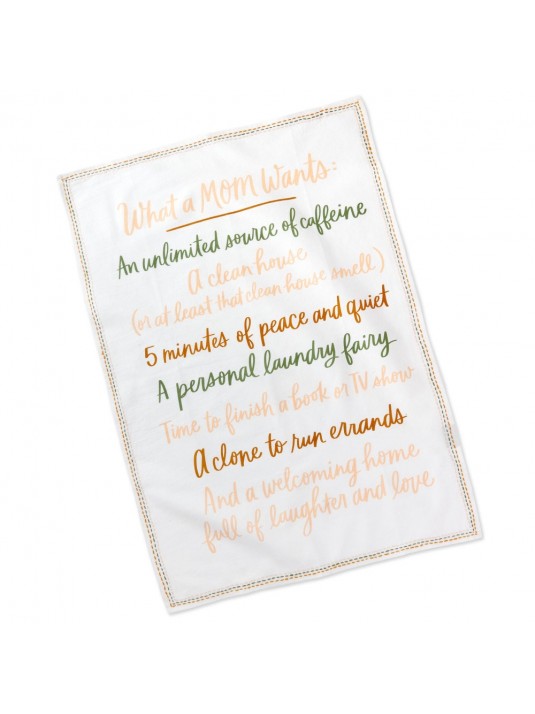 What a MOM Wants:
An unlimited source of caffeine
A clean house
(or at least that clean house smell)
5 minutes of peace and quiet
A personal laundry fairy
Time to finish a book or TV show
A clone to run errands
And a welcoming home
full of laughter and love